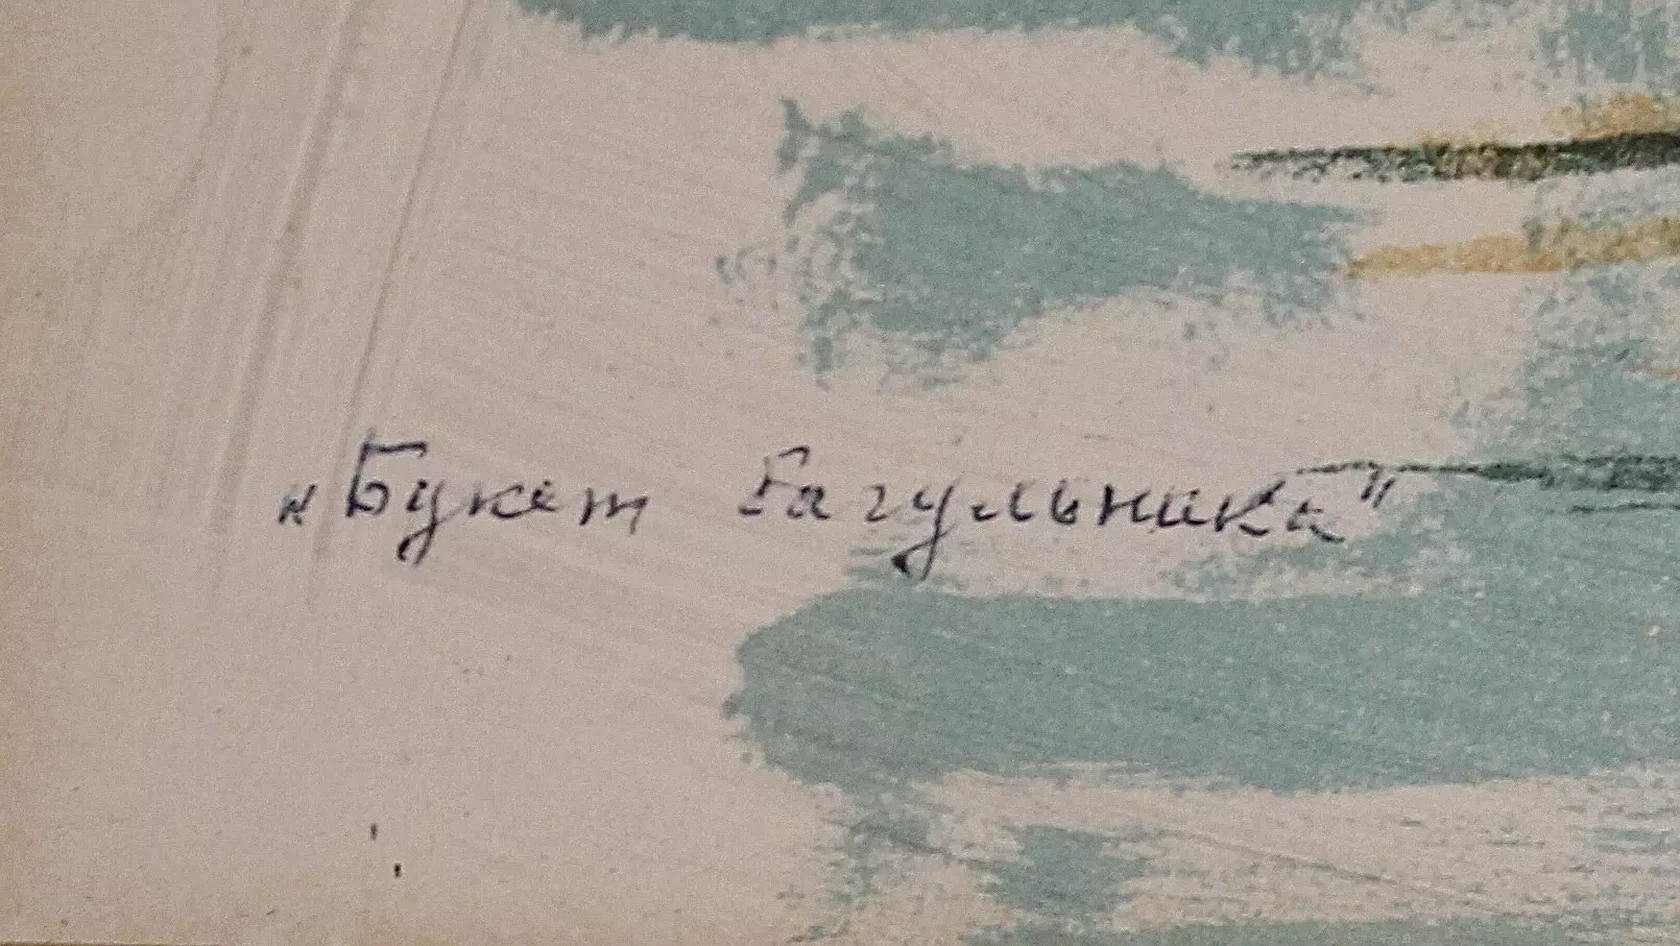 „Букет багульника"